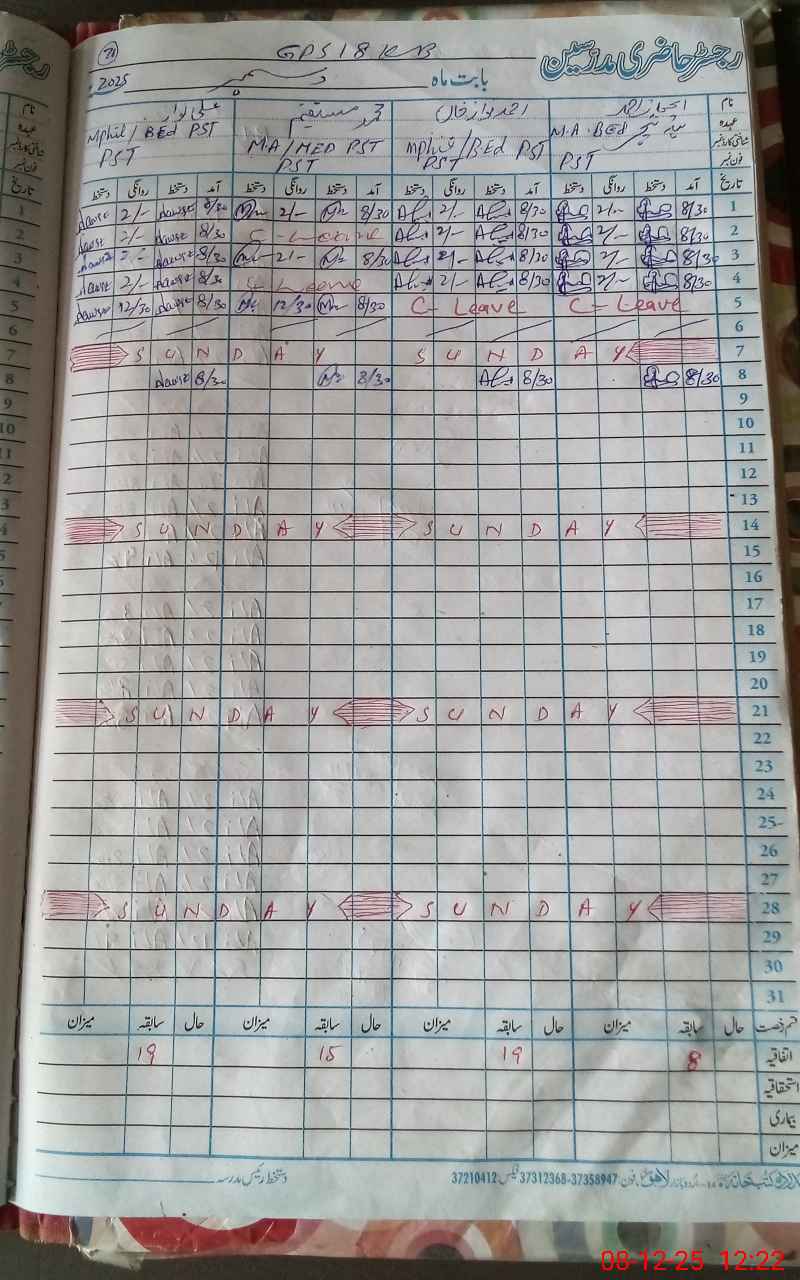 رجسٹر حاضری مدرسین
GPS 18 KB
21
بابت ماہ دسمبر 2025
نام
عہدہ
شناختی کارڈ نمبر
فون نمبر
اعجاز احمد
M.A. BEd
PST
احمد نواز خان
Mphil/BEd PST
PST
محمد مستقیم
MA/MED PST
PST
علی نواز
Mphil/BEd PST
PST
تاریخ آمد دستخط روانگی دستخط آمد دستخط روانگی دستخط آمد دستخط روانگی دستخط آمد دستخط روانگی دستخط
1 8/30 2/- 8/30 2/- 8/30 2/- 8/30 Nawaz 2/- Nawaz
2 8/30 2/- 8/30 2/- C-Leave 8/30 Nawaz 2/- Nawaz
3 8/30 2/- 8/30 2/- 8/30 2/- 8/30 Nawaz 2/- Nawaz
4 8/30 2/- 8/30 2/- C Leave 8/30 Nawaz 2/- Nawaz
5 C- Leave C- Leave 8/30 12/30 8/30 Nawaz 12/30 Nawaz
6
7 SUNDAY SUNDAY
8 8/30 8/30 8/30 8/30 Nawaz
9
10
11
12
13
14 SUNDAY SUNDAY
15
16
17
18
19
20
21 SUNDAY SUNDAY
22
23
24
25
26
27
28 SUNDAY SUNDAY
29
30
31
قسم رخصت حال سابقہ میزان حال سابقہ میزان حال سابقہ میزان حال سابقہ میزان
اتفاقیہ 8 19 15 19
استحقاقیہ
بیماری
میزان
لاہور فون: 37358947-37312368 فیکس 37210412
دستخط رئیس مدرسہ
08-12-25 12:22